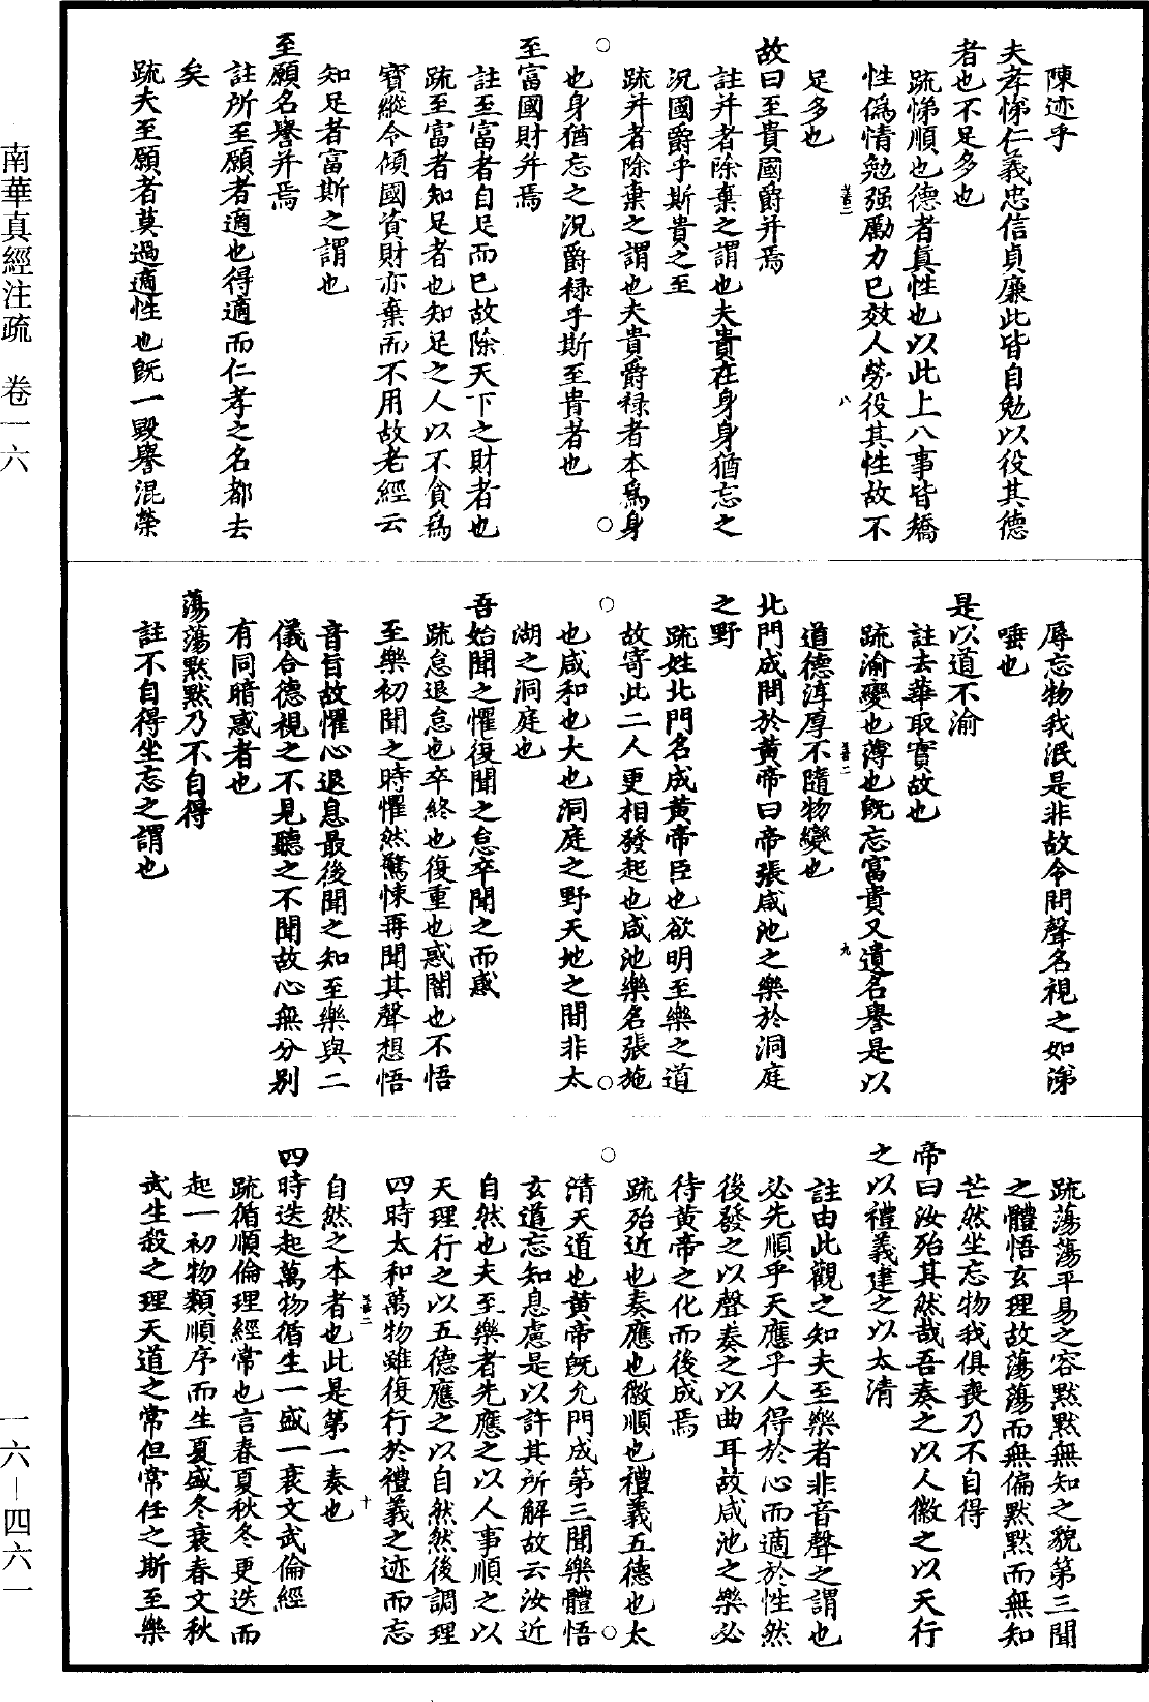 陳迹乎
夫孝悌仁義忠信貞廉此皆自勉以役其德
者也不足多也
疏悌順也德者真性也以此上八事皆矯
性僞情勉强勵力巳效人勞役其性故不
足多也
故曰至貴國爵并焉
註并者除棄之謂也夫貴在身身猶忘之
況國爵乎斯貴之至
疏并者除棄之謂也夫貴爵禄者本爲身
也身猶忘之況爵禄乎斯至貴者也
至富國財并焉
註至富者自足而巳故除天下之財者也
疏至富者知足者也知足之人以不貪爲
寳縱令傾國資財亦棄而不用故老經云
知足者富斯之謂也
至願名譽并焉
註所至願者適也得適而仁孝之名都去
矣
疏夫至願者莫過適性也旣一毀譽混榮
辱忘物我泯是非故令問聲名視之如涕
唾也
是以道不渝
註去華取實故也
疏渝變也薄也旣忘富貴又遺名譽是以
道德淳厚不隨物變也
北門成問於黄帝曰帝張咸池之樂於洞庭
之野
疏姓北門名成黄帝臣也欲明至樂之道
故寄此二人更相發起也咸池樂名張施
也咸和也大也洞庭之野天地之間非太
湖之洞庭也
吾始聞之懼復聞之怠卒聞之而惑
疏怠退怠也卒終也復重也惑闇也不悟
至樂初聞之時懼然驚悚再聞其聲想悟
音旨故懼心退息最後聞之知至樂與二
儀合德視之不見聽之不聞故心無分别
有同暗惑者也
蕩蕩黙黙乃不自得
註不自得坐忘之謂也
疏蕩蕩平易之容黙黙無知之貌第三聞
之體悟玄理故蕩蕩而無偏黙黙而無知
芒然坐忘物我俱喪乃不自得
帝曰汝殆其然哉吾奏之以人徽之以天行
之以禮義建之以太清
註由此觀之知夫至樂者非音聲之謂也
必先順乎天應乎人得於心而適於性然
後發之以聲奏之以曲耳故咸池之樂必
待黄帝之化而後成焉
疏殆近也奏應也徽順也禮義五德也太
清天道也黄帝旣允門成第三聞樂體悟
玄道忘知息慮是以許其所解故云汝近
自然也夫至樂者先應之以人事順之以
天理行之以五德應之以自然然後調理
四時太和萬物雖復行於禮義之迹而忘
自然之本者也此是第一奏也
四時迭起萬物循生一盛一衰文武倫經
疏循順倫理經常也言春夏秋冬更迭而
起一初物類順序而生夏盛冬衰春文秋
武生殺之理天道之常但常任之斯至樂
南華真經注疏　卷一六
一六—四六一
八
九
十